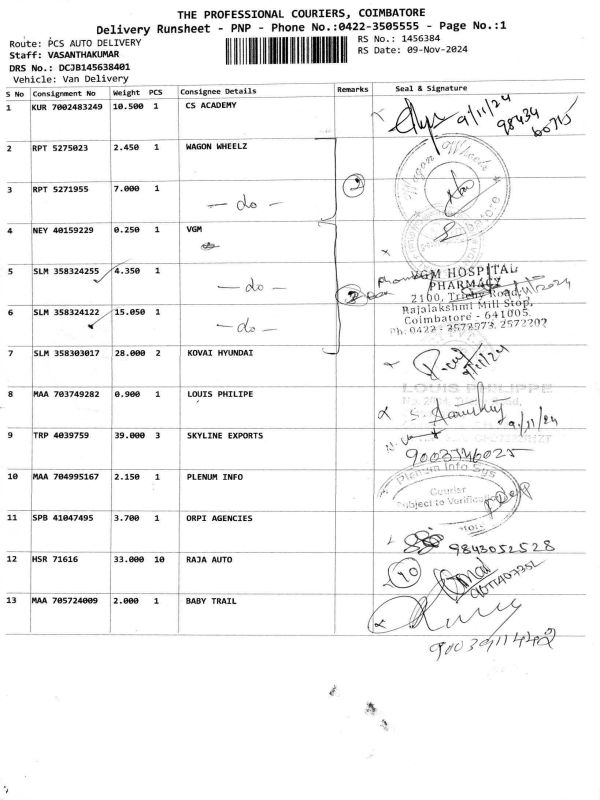 THE PROFESSIONAL COURIERS, COIMBATORE
Delivery Runsheet - PNP - Phone No.:0422-3505555 - Page No.:1
Route: PCS AUTO DELIVERY
RS No.: 1456384
Staff: VASANTHAKUMAR
RS Date: 09-Nov-2024
DRS No.: DCJB145638401
Vehicle: Van Delivery
S No Consignment No Weight PCS Consignee Details Remarks Seal & Signature
1 KUR 7002483249 10.500 1 CS ACADEMY
9/11/24
98434
60715
2 RPT 5275023 2.450 1 WAGON WHEELZ
Wagon Wheelz
2
3 RPT 5271955 7.000 1 — do —
4 NEY 40159229 0.250 1 VGM
5 SLM 358324255 4.350 1 — do —
2
VGM HOSPITAL
PHARMACY
2100, Trichy Road,
Rajalakshmi Mill Stop,
Coimbatore - 641005.
Ph: 0422 - 2572973, 2572202
6 SLM 358324122 15.050 1 — do —
7 SLM 358303017 28.000 2 KOVAI HYUNDAI
9/11/24
8 MAA 703749282 0.900 1 LOUIS PHILIPE
LOUIS PHILIPPE
9/11/24
9 TRP 4039759 39.000 3 SKYLINE EXPORTS
9003746025
10 MAA 704995167 2.150 1 PLENUM INFO
Plenum Info Sys
Courier
Subject to Verification
11 SPB 41047495 3.700 1 ORPI AGENCIES
9843052528
12 HSR 71616 33.000 10 RAJA AUTO
10
13 MAA 705724009 2.000 1 BABY TRAIL